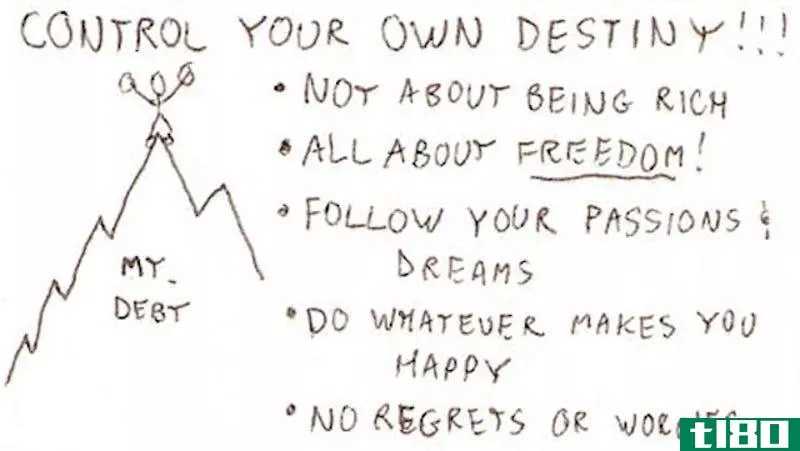 CONTROL YOUR OWN DESTINY!!!
• NOT ABOUT BEING RICH
• ALL ABOUT FREEDOM!
• FOLLOW YOUR PASSIONS &
DREAMS
MY
DEBT
• DO WHATEVER MAKES YOU
HAPPY
• NO REGRETS OR
tl80